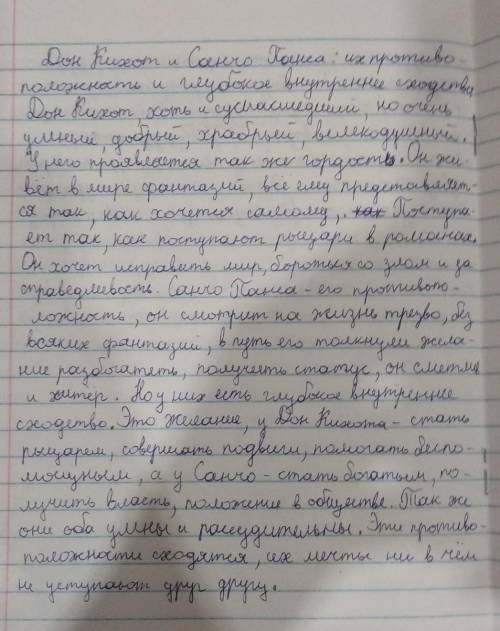 Дон Кихот и Санчо Панса: их противо-
положность и глубокое внутреннее сходство
Дон Кихот, хоть и сусмасшедший, но очень
умный, добрый, храбрый, великодушный.
У него проявляется так же гордость. Он жи-
вёт в мире фантазий, всё ему представляет-
ся так, как хочется самому, Поступа-
ет так, как поступают рыцари в романах.
Он хочет исправить мир, бороться со злом и за
справедливость. Санчо Панса - его противопо-
ложность, он смотрит на жизнь трезво, без
всяких фантазий, в путь его толкнули жела-
ние разбогатеть, получить статус, он сметлив
и хитёр. Но у них есть глубокое внутреннее
сходство. Это желание, у Дон Кихота - стать
рыцарем, совершать подвиги, помогать беспо-
мощным, а у Санчо - стать богатым, по-
лучить власть, положение в обществе. Так же
они оба умны и рассудительны. Эти противо-
положности сходятся, их мечты ни в чём
не уступают друг другу.